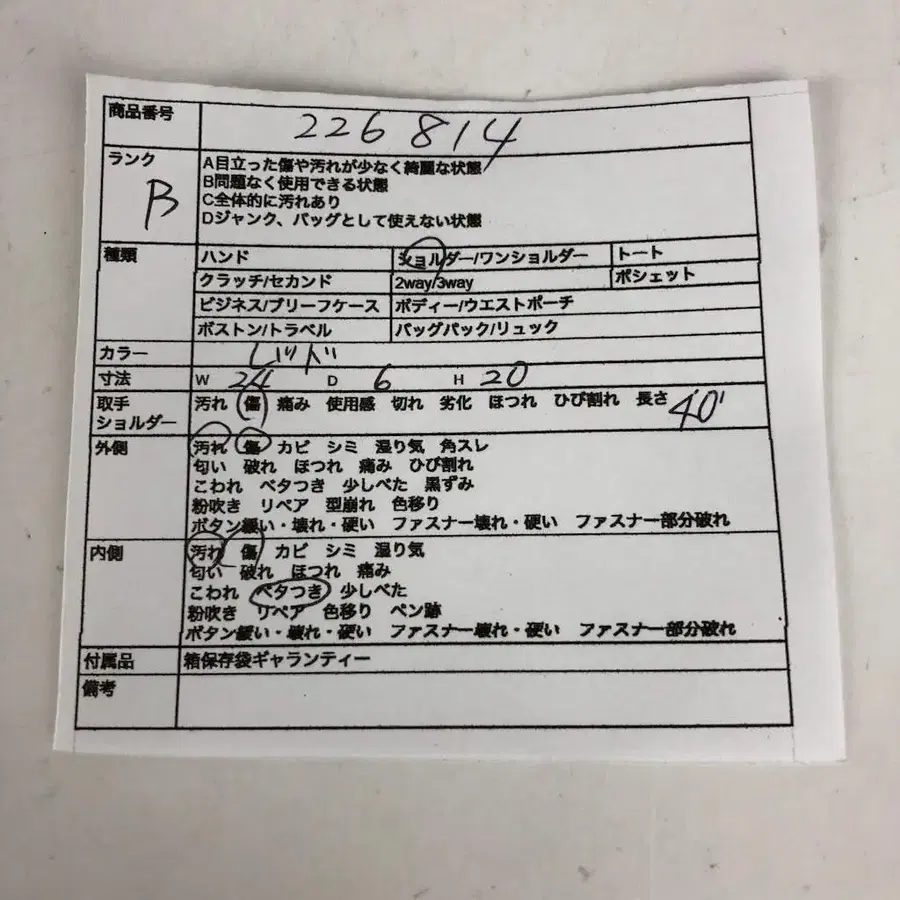 商品番号 226814
ランク B
A目立った傷や汚れが少なく綺麗な状態
B問題なく使用できる状態
C全体的に汚れあり
Dジャンク、バッグとして使えない状態
種類 ハンド ショルダー/ワンショルダー トート
クラッチ/セカンド 2way/3way ポシェット
ビジネス/ブリーフケース ボディー/ウエストポーチ
ボストン/トラベル バッグパック/リュック
カラー レッド
寸法 W 24 D 6 H 20
取手 汚れ 傷 痛み 使用感 切れ 劣化 ほつれ ひび割れ 長さ 40
ショルダー
外側 汚れ 傷 カビ シミ 湿り気 角スレ
匂い 破れ ほつれ 痛み ひび割れ
こわれ ベタつき 少しべた 黒ずみ
粉吹き リペア 型崩れ 色移り
ボタン緩い・壊れ・硬い ファスナー壊れ・硬い ファスナー部分破れ
内側 汚れ 傷 カビ シミ 湿り気
匂い 破れ ほつれ 痛み
こわれ ベタつき 少しべた
粉吹き リペア 色移り ペン跡
ボタン緩い・壊れ・硬い ファスナー壊れ・硬い ファスナー部分破れ
付属品 箱保存袋ギャランティー
備考